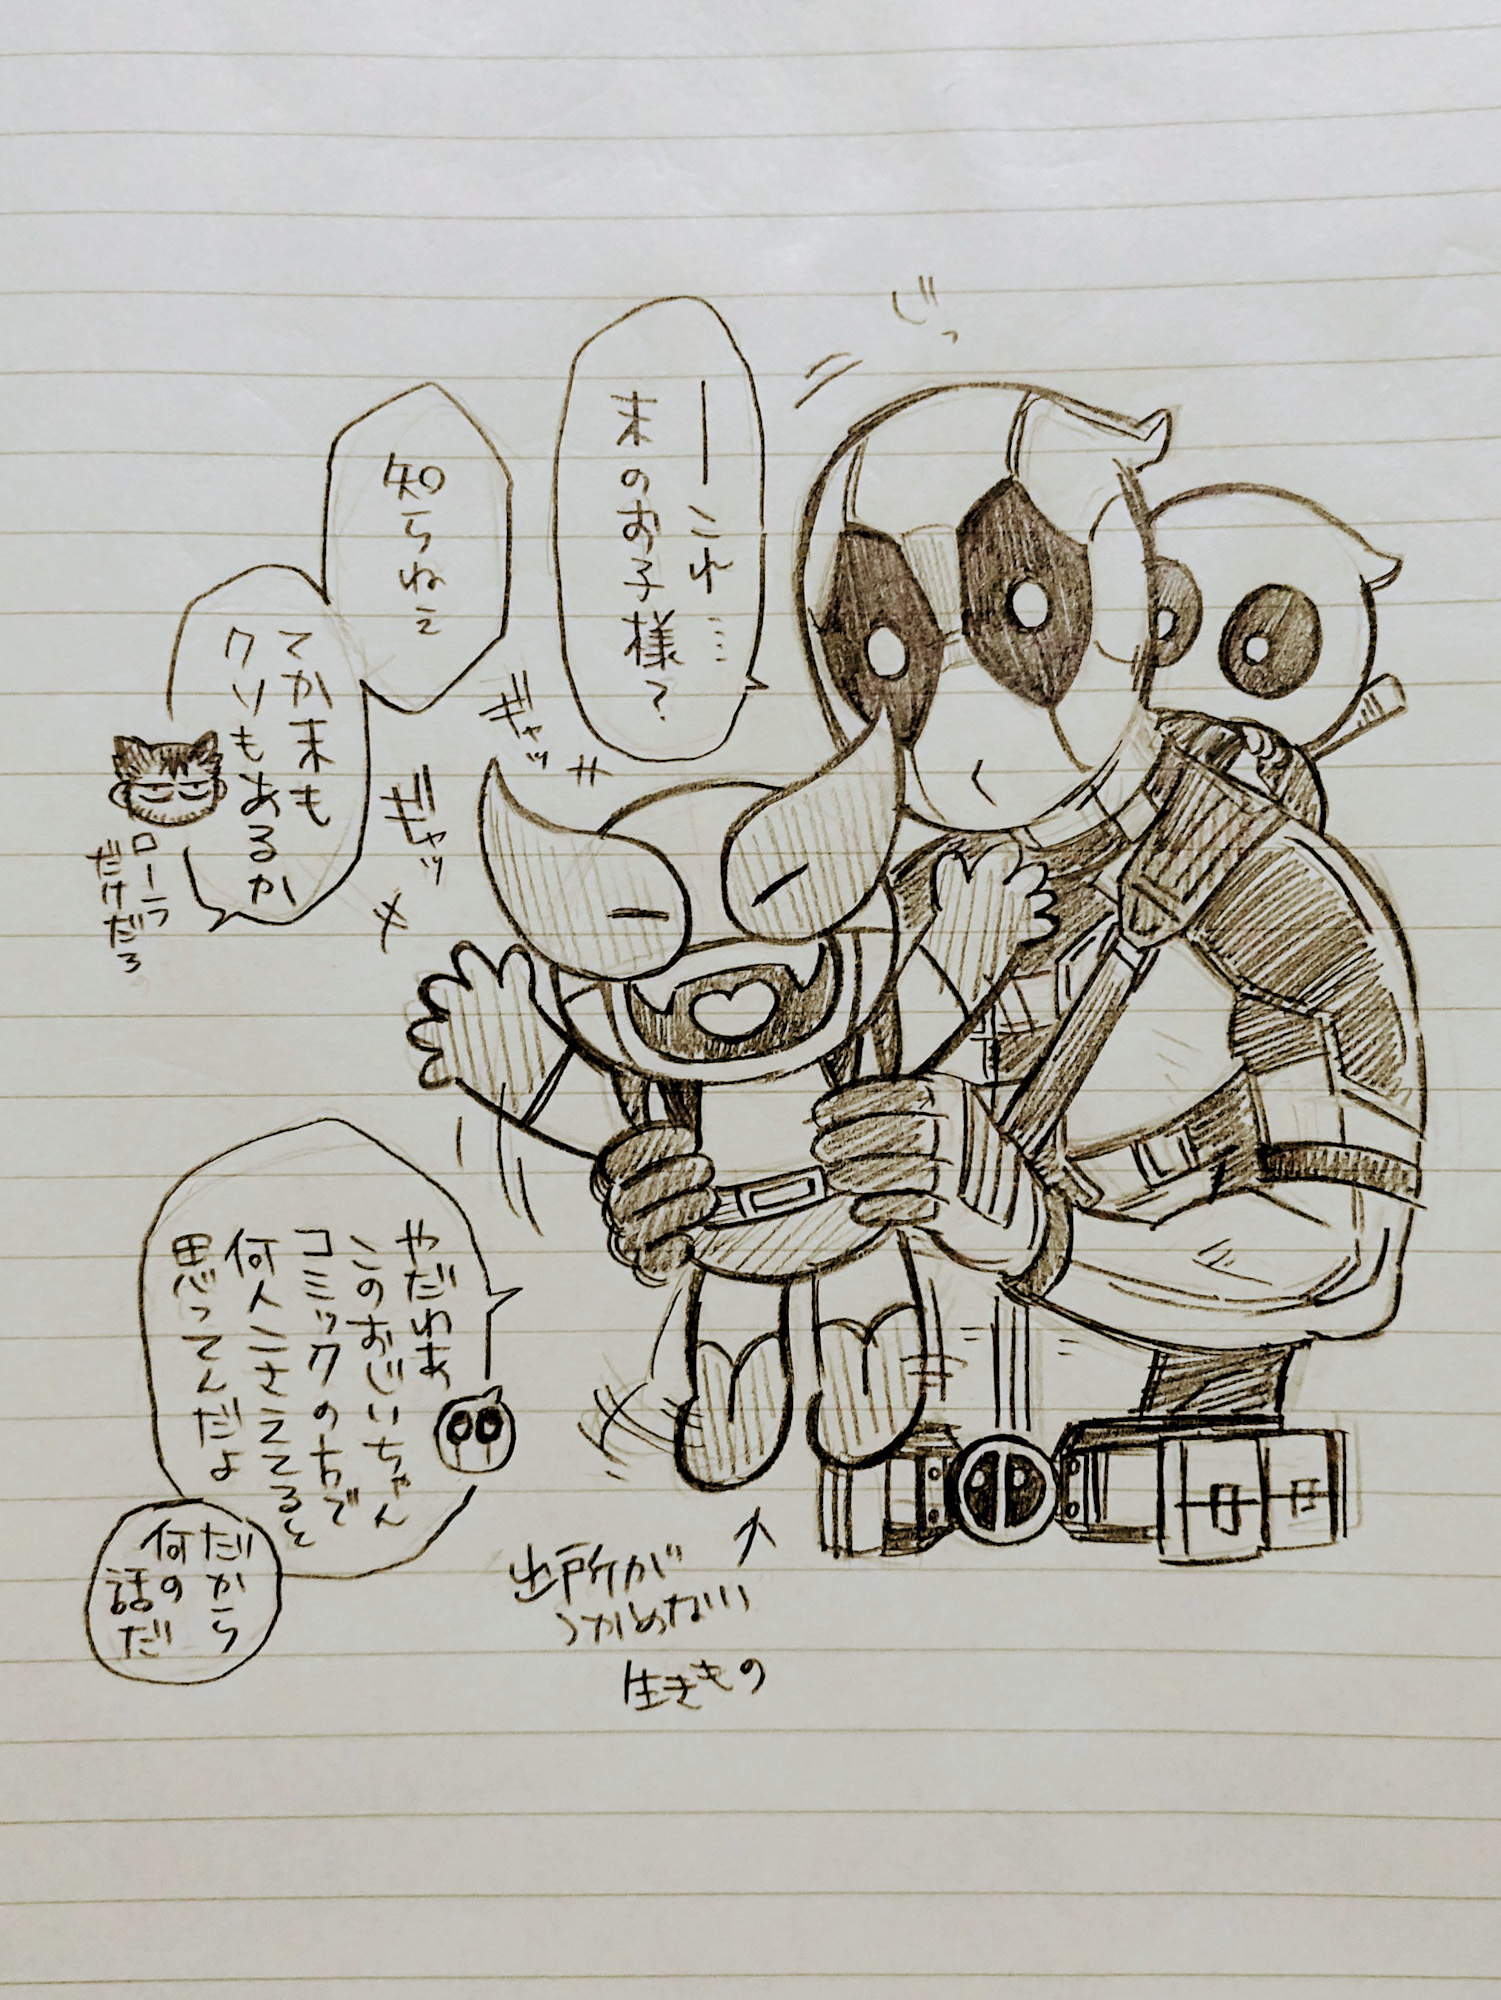 じっ
――これ…
末のお子様？
知らねえ
てか末も
クソもあるか
ローラ
だけだろ
ギャッ
ギャッ
やだわぁ
このおじいちゃん
コミックの方で
何人こさえてると
思ってんだよ
だから
何の
話だ
出所が
つかめない
生きもの